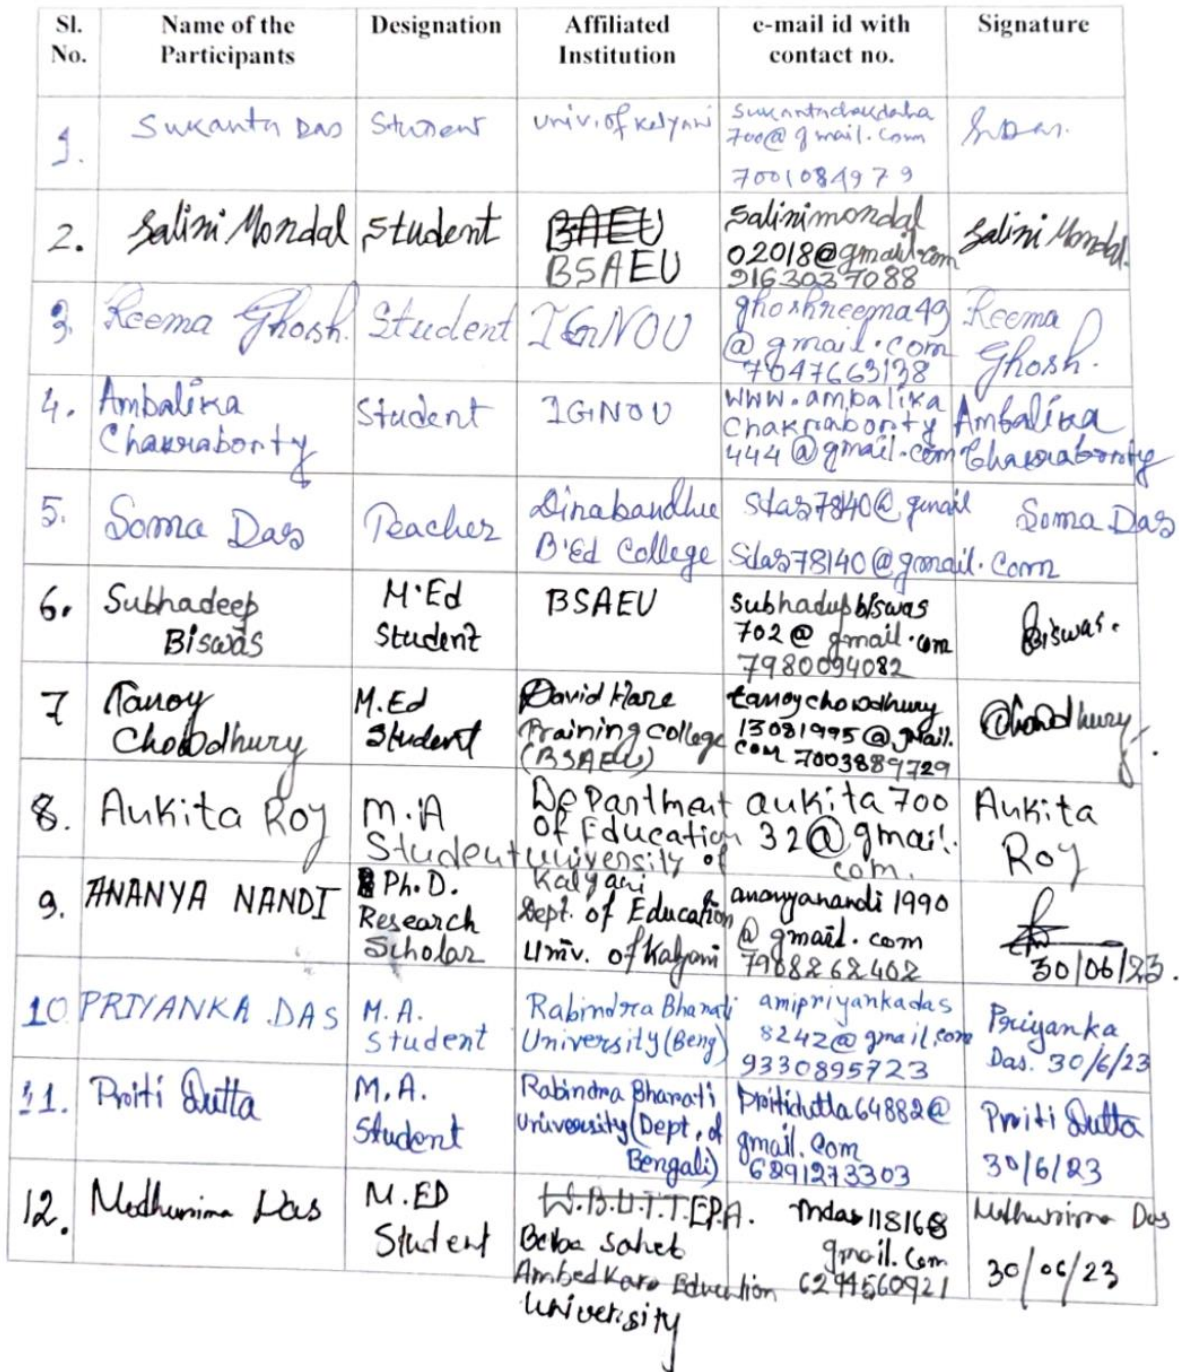 Sl. No.	Name of the Participants	Designation	Affiliated Institution	e-mail id with contact no.	Signature
1.	Sukanta Das	Student	Univ. of Kalyani	sukantachakdaha 700@gmail.com 7001084979	SDas.
2.	Salini Mondal	Student	BAEU BSAEU	salinimondal 02018@gmail.com 9163037088	Salini Mondal.
3.	Reema Ghosh.	Student	IGNOU	ghoshreema49 @gmail.com 7047663138	Reema Ghosh.
4.	Ambalika Chakraborty	Student	IGNOU	www.ambalika Chakraborty 444@gmail.com	Ambalika Chakraborty
5.	Soma Das	Teacher	Dinabandhu B'Ed College	sdas7840@gmail Sdas78140@gmail.com	Soma Das
6.	Subhadeep Biswas	M.Ed Student	BSAEU	subhadupbiswas 702@gmail.com 7980094082	Biswas.
7	Tanoy Chowdhury	M.Ed Student	David Hare Training college (BSAEU)	tanoychowdhury 13081995@gmail. com 7003889729	Chowdhury.
8.	Ankita Roy	M.A Student	Department Of Education university of Kalyani	ankita700 32@gmail. com.	Ankita Roy
9.	ANANYA NANDI	Ph.D. Research Scholar	Dept. of Education Univ. of Kalyani	ananyanandi1990 @gmail.com 7908262402	30/06/23.
10	PRIYANKA DAS	M.A. Student	Rabindra Bharati University (Beng)	amipriyankadas 8242@gmail.com 9330895723	Priyanka Das. 30/6/23
11.	Priti Dutta	M.A. Student	Rabindra Bharati University (Dept. of Bengali)	Pritidutta64882@ gmail.com 6291273303	Priti Dutta 30/6/23
12.	Madhurima Das	M.ED Student	W.B.U.T.T.EPA. Baba Saheb Ambedkar Education University	mdas118168 gmail.com 6294560921	Madhurima Das 30/06/23